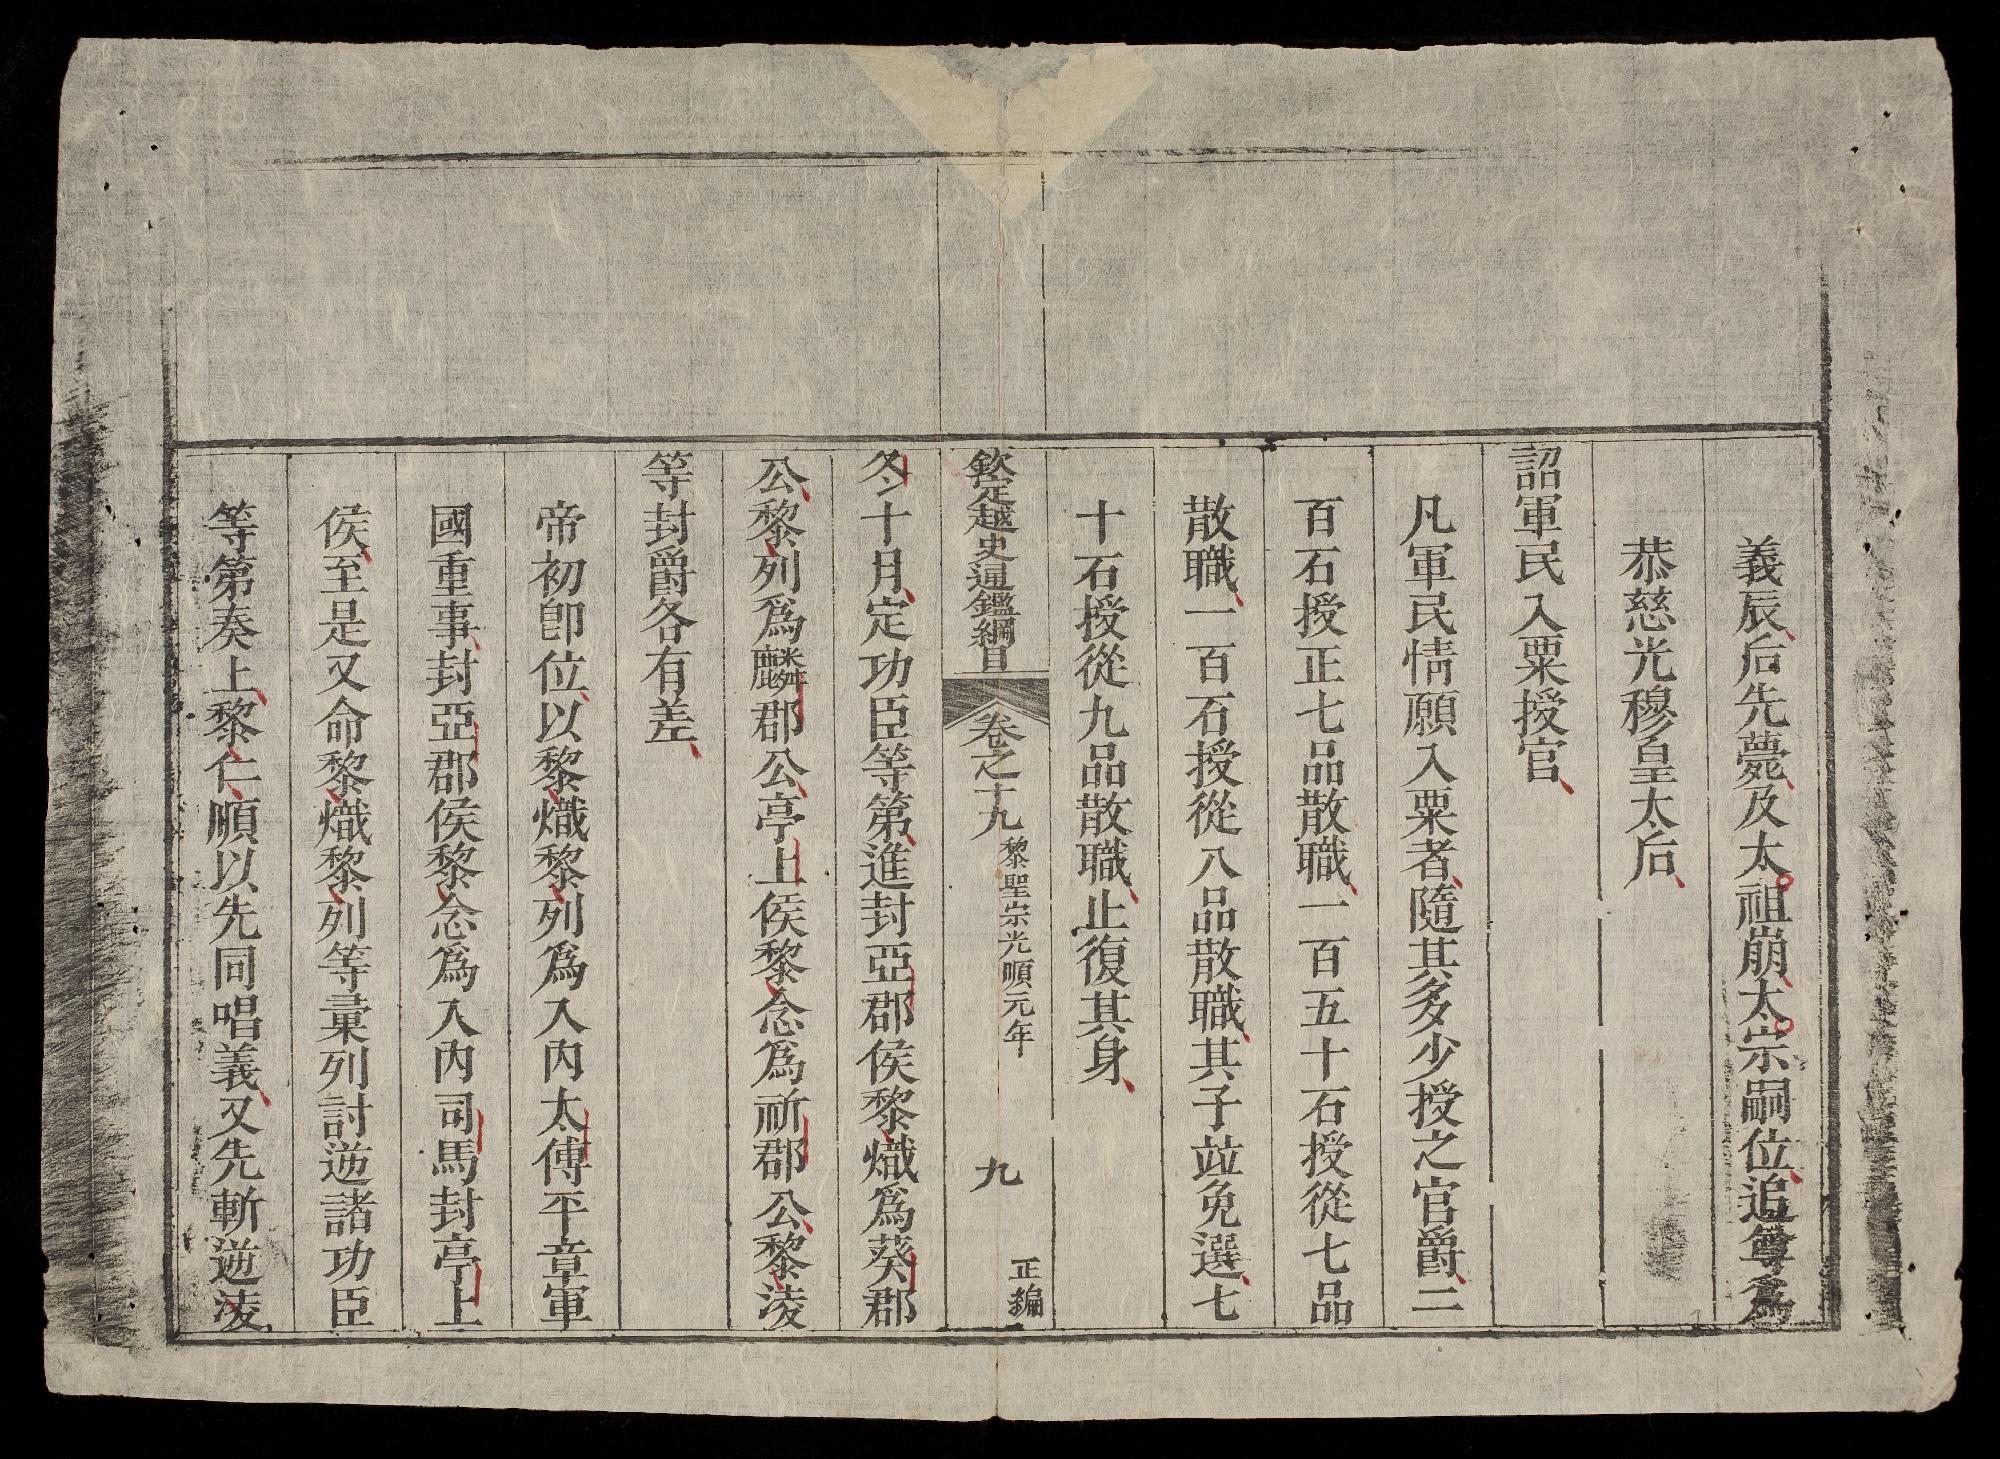 義辰后先薨及太祖崩太宗嗣位追尊爲
恭慈光穆皇太后
詔軍民入粟授官
凡軍民情願入粟者隨其多少授之官爵二
百石授正七品散職一百五十石授從七品
散職一百石授從八品散職其子竝免選七
十石授從九品散職止復其身
欽定越史通鑑綱目 卷之十九 黎聖宗光順元年 九 正編
冬十月定功臣等第進封亞郡侯黎熾爲葵郡
公黎列爲麟郡公亭上侯黎念爲祈郡公黎淩
等封爵各有差
帝初卽位以黎熾黎列爲入內太傅平章軍
國重事封亞郡侯黎念爲入內司馬封亭上
侯至是又命黎熾黎列等彙列討逆諸功臣
等第奏上黎仁順以先同唱義又先斬逆淩